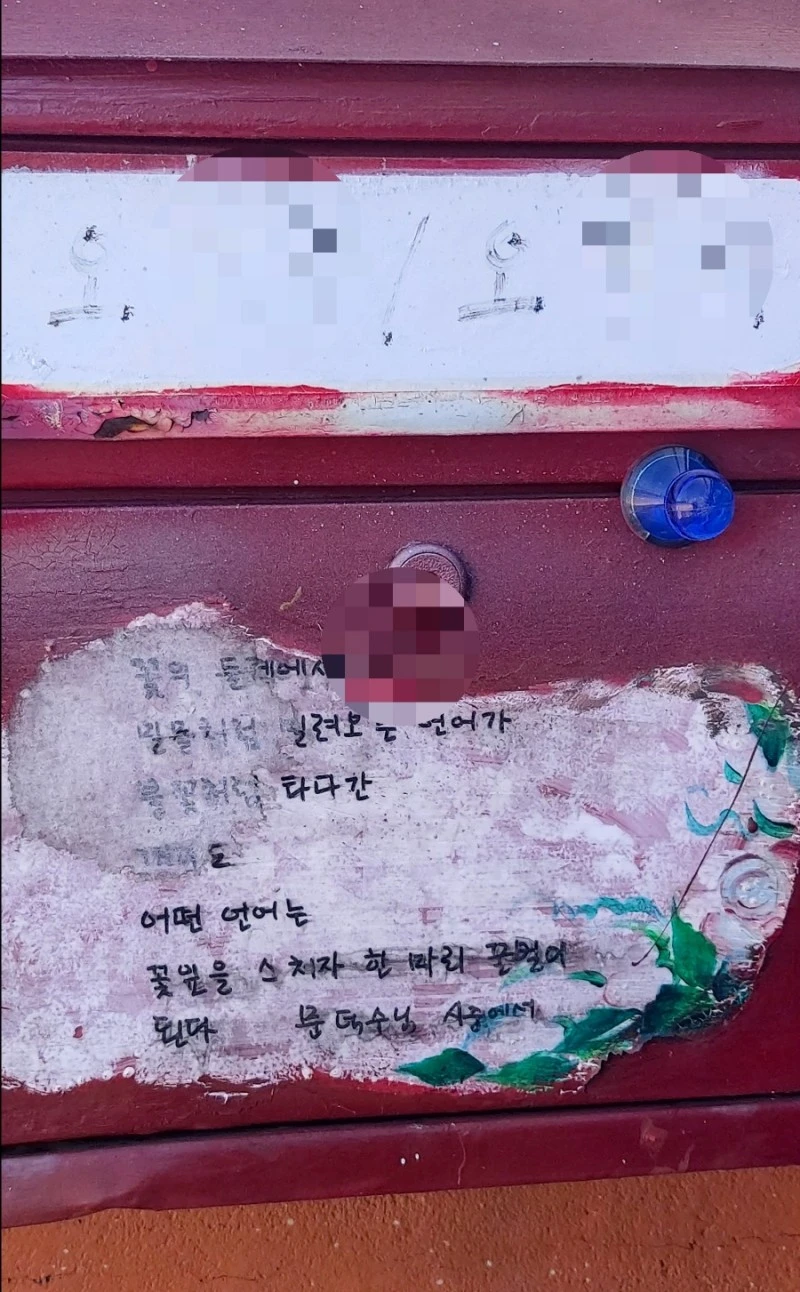 오 / 오
꽃의 둘레에서
밀물처럼 밀려오는 언어가
불꽃처럼 타다간
도
어떤 언어는
꽃잎을 스치자 한 마리 꿀벌이
된다 문덕수님 시중에서